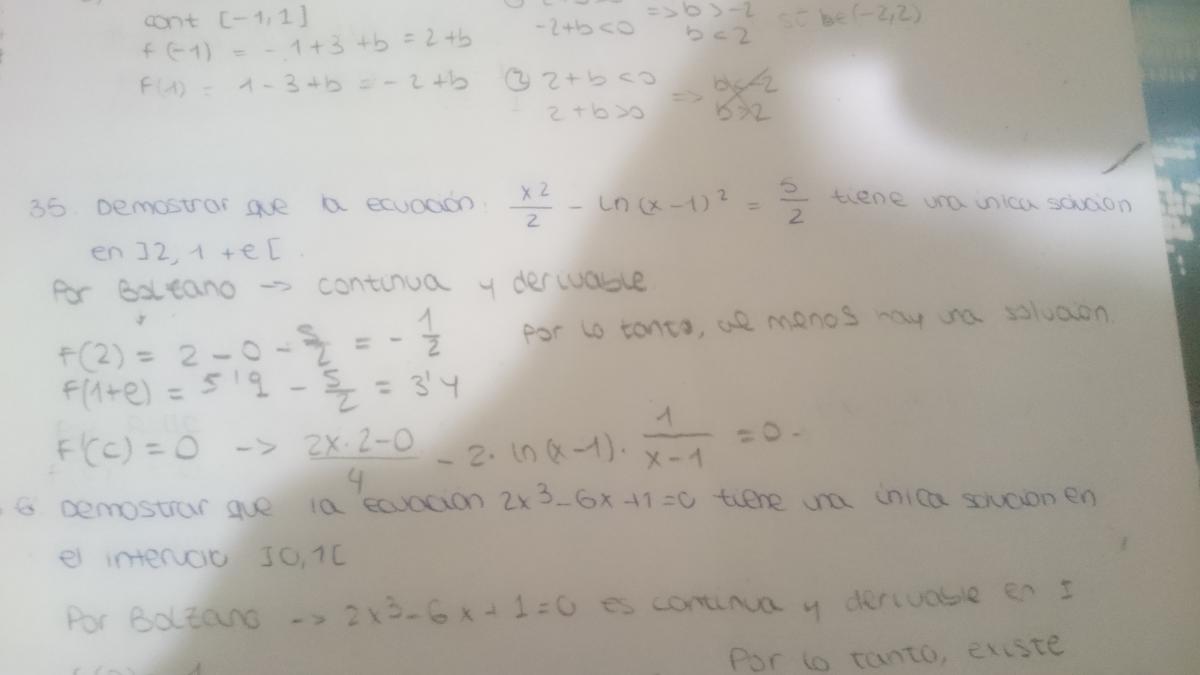 cont [-1,1]
-2+b<0 => b>-2 b<2 si b∈(-2,2)
f(-1) = -1+3+b = 2+b
f(1) = 1-3+b = -2+b ② 2+b<0 => b<-2
2+b>0 b>2
35. Demostrar que la ecuación: x2/2 - Ln(x-1)² = 5/2 tiene una única solución
en ]2, 1+e[.
Por Bolzano -> continua y derivable.
f(2) = 2-0-5/2 = -1/2 Por lo tanto, al menos hay una solución.
f(1+e) = 5'9 - 5/2 = 3'4
f'(c)=0 -> 2x·2-0/4 - 2·ln(x-1)·1/x-1 =0.
6 Demostrar que la ecuación 2x³-6x+1=0 tiene una única solución en
el intervalo ]0,1[
Por Bolzano -> 2x³-6x+1=0 es continua y derivable en I
Por lo tanto, existe